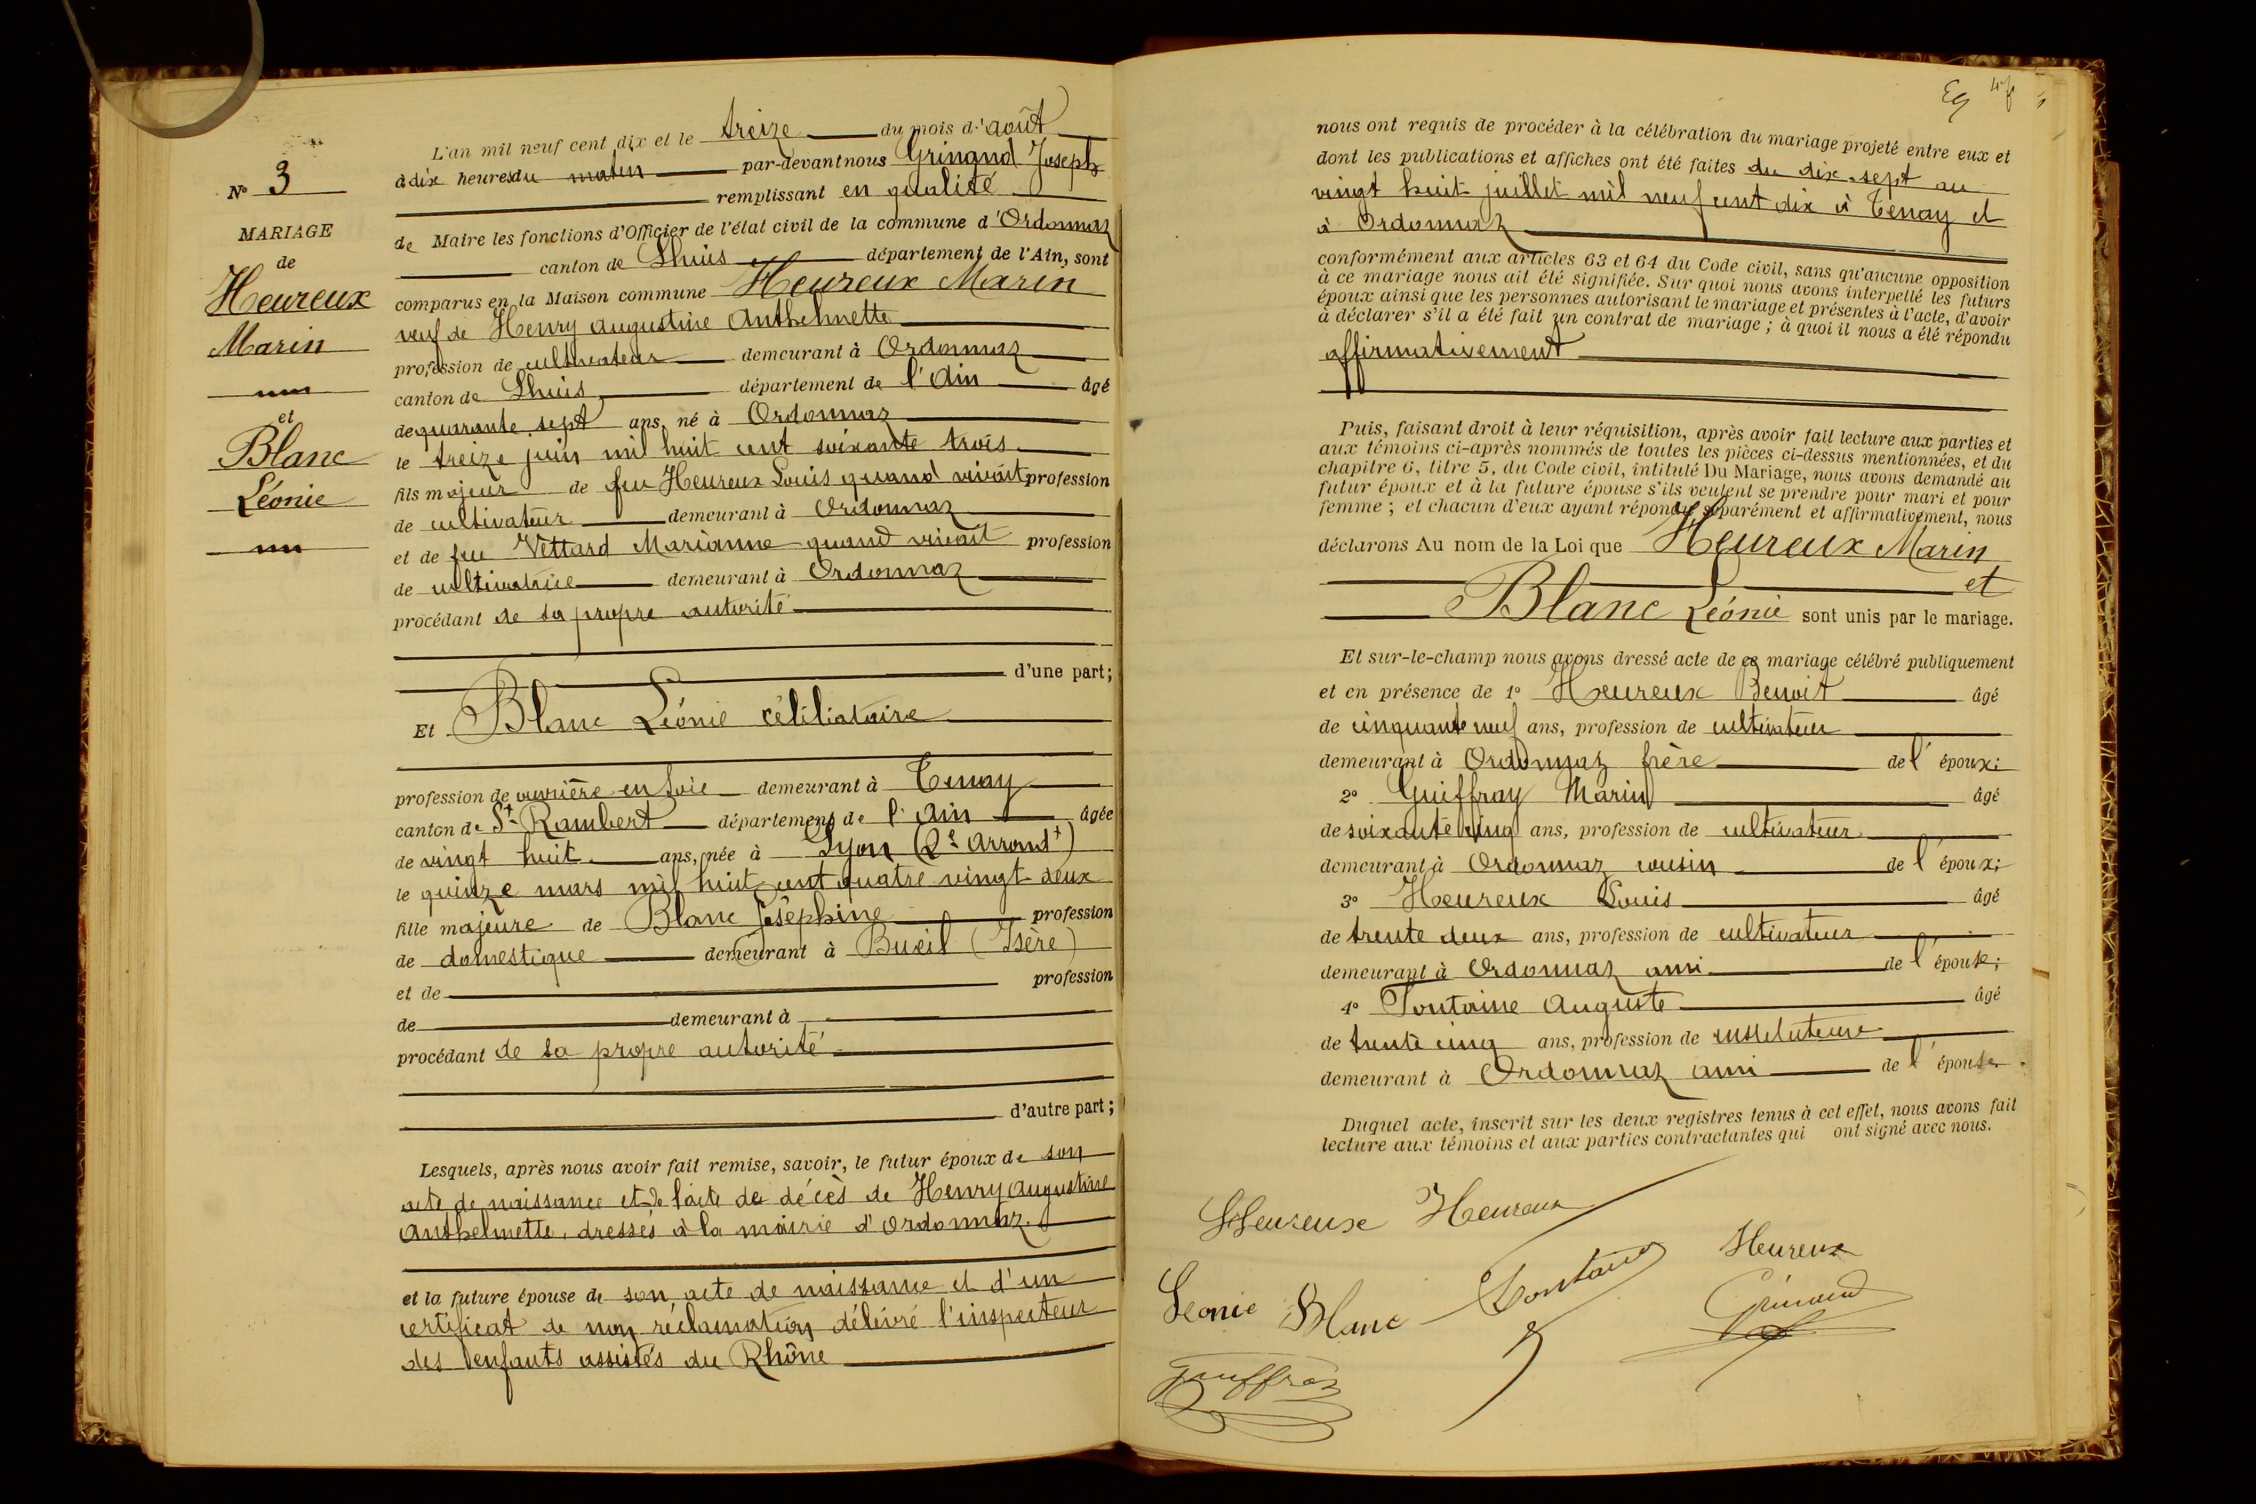 N° 3
MARIAGE
de
Heureux
Marin
et
Blanc
Léonie
L'an mil neuf cent dix et le treize du mois d'août
à dix heures du matin par-devant nous Grinand Joseph
remplissant en qualité
de Maire les fonctions d'Officier de l'état civil de la commune d'Ordonnaz
canton de Lhuis département de l'Ain, sont
comparus en la Maison commune Heureux Marin
veuf de Henry Augustine Anthelmette
profession de cultivateur demeurant à Ordonnaz
canton de Lhuis département de l'Ain âgé
de quarante sept ans, né à Ordonnaz
le treize juin mil huit cent soixante trois
fils majeur de feu Heureux Louis quand vivait profession
de cultivateur demeurant à Ordonnaz
et de feu Vettard Marianne quand vivait profession
de cultivatrice demeurant à Ordonnaz
procédant de sa propre autorité
d'une part;
Et Blanc Léonie célibataire
profession de ouvrière en soie demeurant à Tenay
canton de St Rambert département de l'Ain âgée
de vingt huit ans, née à Lyon (2e arrondt)
le quinze mars mil huit cent quatre vingt deux
fille majeure de Blanc Joséphine profession
de domestique demeurant à Bueil (Isère)
et de profession
de demeurant à
procédant de sa propre autorité
d'autre part;
Lesquels, après nous avoir fait remise, savoir, le futur époux de son
acte de naissance et de l'acte de décès de Henry Augustine
Anthelmette, dressés à la mairie d'Ordonnaz.
et la future épouse de son acte de naissance et d'un
certificat de non réclamation délivré l'inspecteur
des enfants assistés du Rhône
nous ont requis de procéder à la célébration du mariage projeté entre eux et
dont les publications et affiches ont été faites du dix-sept au
vingt huit juillet mil neuf cent dix à Tenay et
à Ordonnaz
conformément aux articles 63 et 64 du Code civil, sans qu'aucune opposition
à ce mariage nous ait été signifiée. Sur quoi nous avons interpellé les futurs
époux ainsi que les personnes autorisant le mariage et présentes à l'acte, d'avoir
à déclarer s'il a été fait un contrat de mariage; à quoi il nous a été répondu
affirmativement
Puis, faisant droit à leur réquisition, après avoir fait lecture aux parties et
aux témoins ci-après nommés de toutes les pièces ci-dessus mentionnées, et du
chapitre 6, titre 5, du Code civil, intitulé Du Mariage, nous avons demandé au
futur époux et à la future épouse s'ils veulent se prendre pour mari et pour
femme; et chacun d'eux ayant répondu séparément et affirmativement, nous
déclarons Au nom de la Loi que Heureux Marin
et
Blanc Léonie sont unis par le mariage.
Et sur-le-champ nous avons dressé acte de ce mariage célébré publiquement
et en présence de 1° Heureux Benoit âgé
de cinquante neuf ans, profession de cultivateur
demeurant à Ordonnaz frère de l'époux;
2° Guiffray Marin âgé
de soixante cinq ans, profession de cultivateur
demeurant à Ordonnaz cousin de l'époux;
3° Heureux Louis âgé
de trente deux ans, profession de cultivateur
demeurant à Ordonnaz ami de l'épouse;
4° Fontaine Auguste âgé
de trente cinq ans, profession de instituteur
demeurant à Ordonnaz ami de l'épouse.
Duquel acte, inscrit sur les deux registres tenus à cet effet, nous avons fait
lecture aux témoins et aux parties contractantes qui ont signé avec nous.
Heureux Heureux
Heureux
Léonie Blanc Fontaine Grinand
Guiffray